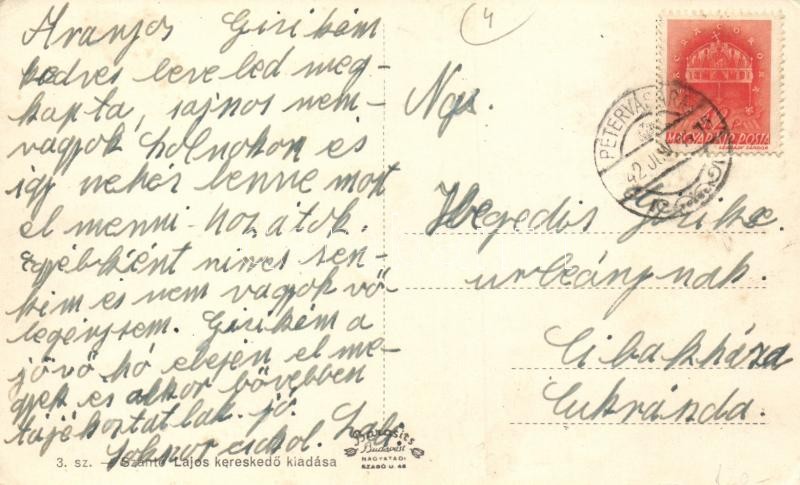 Aranyos Girikém
kedves leveled meg-
kapta, sajnos nem-
vagyok holnokon és
igy nehéz lenne most
el menni-hozátok.
Egyébként nincs sen-
kim és nem vagyok vő-
legénysem. Girikém a
jövő hó elején el me-
gyek es akkor bővebben
tájékoztatlak. jó.
Sokszor csókol. Laji
3. sz. — Szántó Lajos kereskedő kiadása
Barasits
Budapest
NAGYATÁDI
SZABÓ U. 48
4
MAGYAR KIR. POSTA
PÉTERVÁSÁRA
42. JUN
Ngs.
Hegedüs Girike
urleánynak.
Cibakháza
Cukrászda.